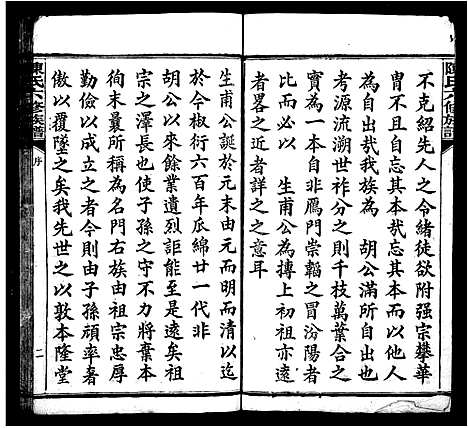 陳氏六修族譜
不克紹先人之令緒徒欲附強宗攀華
冑不且自忘其本哉忘其本而以他人
為自出哉我族為　胡公滿所自出也
考源流溯世祚分之則千枝萬葉合之
為一本自非雁門崇韜之冒汾陽者
比而必以　生甫公為摶上初祖亦遠
者畧之近者詳之之意耳
生甫公誕於元末由元而明而清以迄
於今椒衍六百年瓜綿廿一代非
胡公以來餘業遺烈詎能至是遠矣祖
宗之澤長也使子孫之守不力將葉本
徇末曩所稱為名門右族由祖宗忠厚
勤儉以成立之者今則由子孫頑率奢
傲以覆墜之矣我先世之以敦本隆堂
陳氏六修族譜
序
二